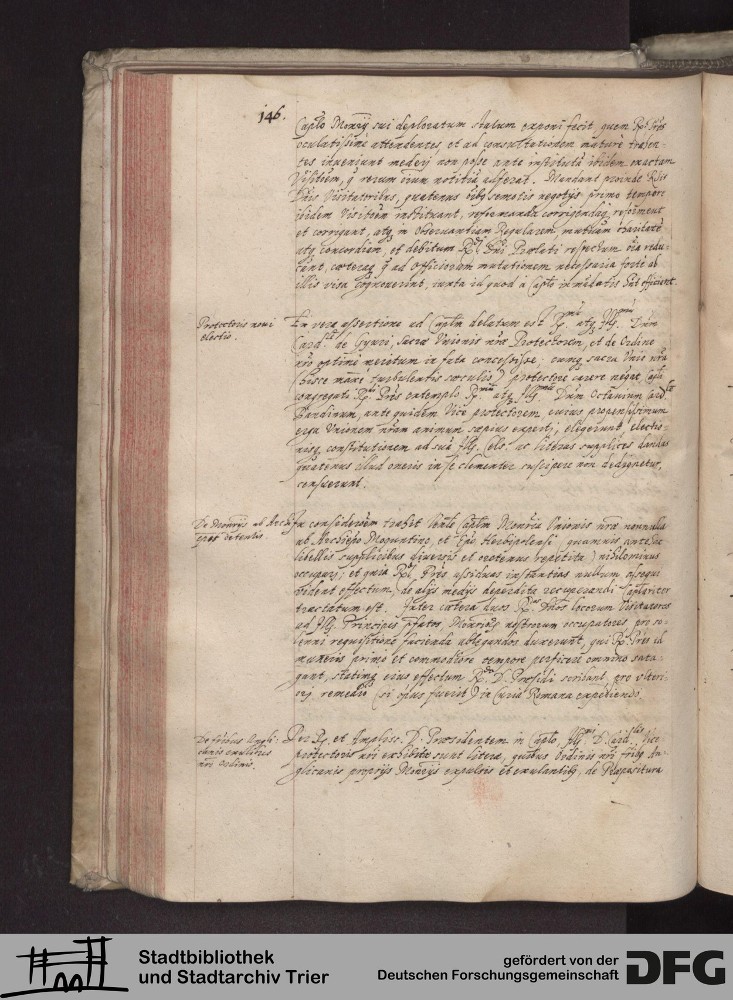 146.
Capto Monrij sui deploratum statum exponi fecit, quem Rdi Pres
oculatissime attendentes, et ad consultationem mature trahen-
tes inveniunt mederij non posse ante institutā ibidem exactam
Visitōem, q̄ rerum oīum notitiā adferat. Mandant proinde
Dnis Visitatoribus, quatenus semotis negotijs primo tempore
ibidem Visitōem instituant, reformanda corrigendaq reforment
et corrigant, atq in observantiam Regularem, mutuam charitatē
atq concordiam, et debitum Dni Prælati respectum oīa redu-
cant, cæteraq q̄ ad officiorum mutationem necessaria forte ab
illis visa cognoverint, iuxta id quod à Capto in mandatis
Protectoris novi
electio.
Ex vera assertione ad Captm delatum est atq Dnm
Card. de Gyvri, Sacræ Unionis nræ Protectorem, et de Ordine
nro optime meritum in fata concessisse; cumq sacra Unio nra
(hisce turbulentis sæculis) protectore carere neqat,
congregati Rdi Pres extemplo atq Dnm Octavium Card
Bandinum, ante quidem Vice protectorem, cuius propensissimum
erga Unionem nram animum sæpius experti, elegerunt, electio-
nisq constitutionem ad suā Cels. ac literas supplices dandas
quatenus illud oneris in se clementer suscipere non dedignetur,
censuerunt.
De Monrijs ab Archi
epis detentis.
In considerōem trahit Captm Monria Unionis nræ nonnulla
ab Archiepo Moguntino, et Herbipolensi, quamvis
libellis supplicibus diversis et oretenus repetita) nihilominus
occupari; et quia Pres assiduas instantias nullum assequi
vident effectum, de alijs medijs deperdita recuperandi
tractatum est. Inter cætera duos Dnos locorum Visitatores
ad Principes pfatos, Monriorū nostrorum occupatores pro so-
lenni requisitione facienda ablegandos duxerunt, qui Rdi Pres id
muneris primo et commodiore tempore perficere omnino sata-
gunt, statimq eius effectum D. Præsidi scribant, pro ulteri-
orj remedio (si opus fuerit) in Curiâ Romana expediendo.
De fribus Angli-
canis exulibus
nri ordinis.
Per et Ampliss. D. Præsidentem in Capto, D. Card. Vice
protectoris nri exhibitæ sunt literæ, quibus Ordinis nri fribq An-
glicanis proprijs Monrijs expulsis et exulantibq, de Præpositura
Stadtbibliothek
und Stadtarchiv Trier
gefördert von der
Deutschen Forschungsgemeinschaft
DFG